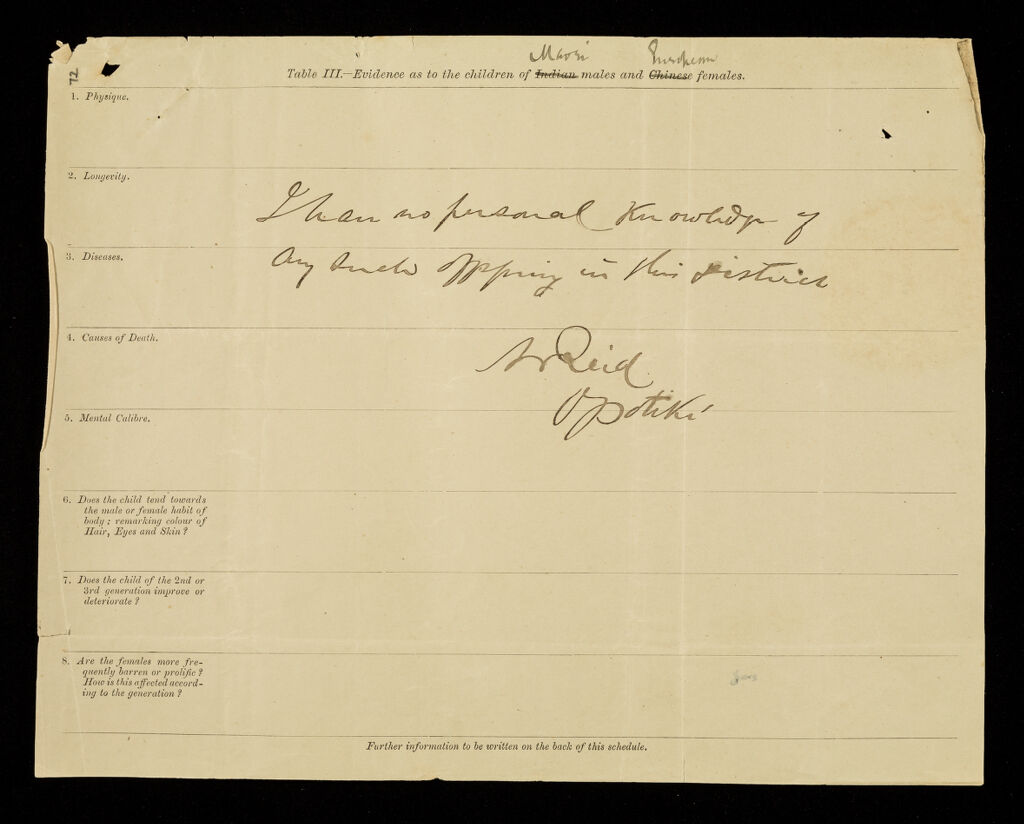 72
Maori European
Table III.—Evidence as to the children of Indian males and Chinese females.
1. Physique.
2. Longevity.
I have no personal Knowledge of
3. Diseases.
any such offspring in this District
4. Causes of Death.
Reid
Opotiki
5. Mental Calibre.
6. Does the child tend towards
the male or female habit of
body; remarking colour of
Hair, Eyes and Skin?
7. Does the child of the 2nd or
3rd generation improve or
deteriorate?
8. Are the females more fre-
quently barren or prolific?
How is this affected accord-
ing to the generation?
Further information to be written on the back of this schedule.